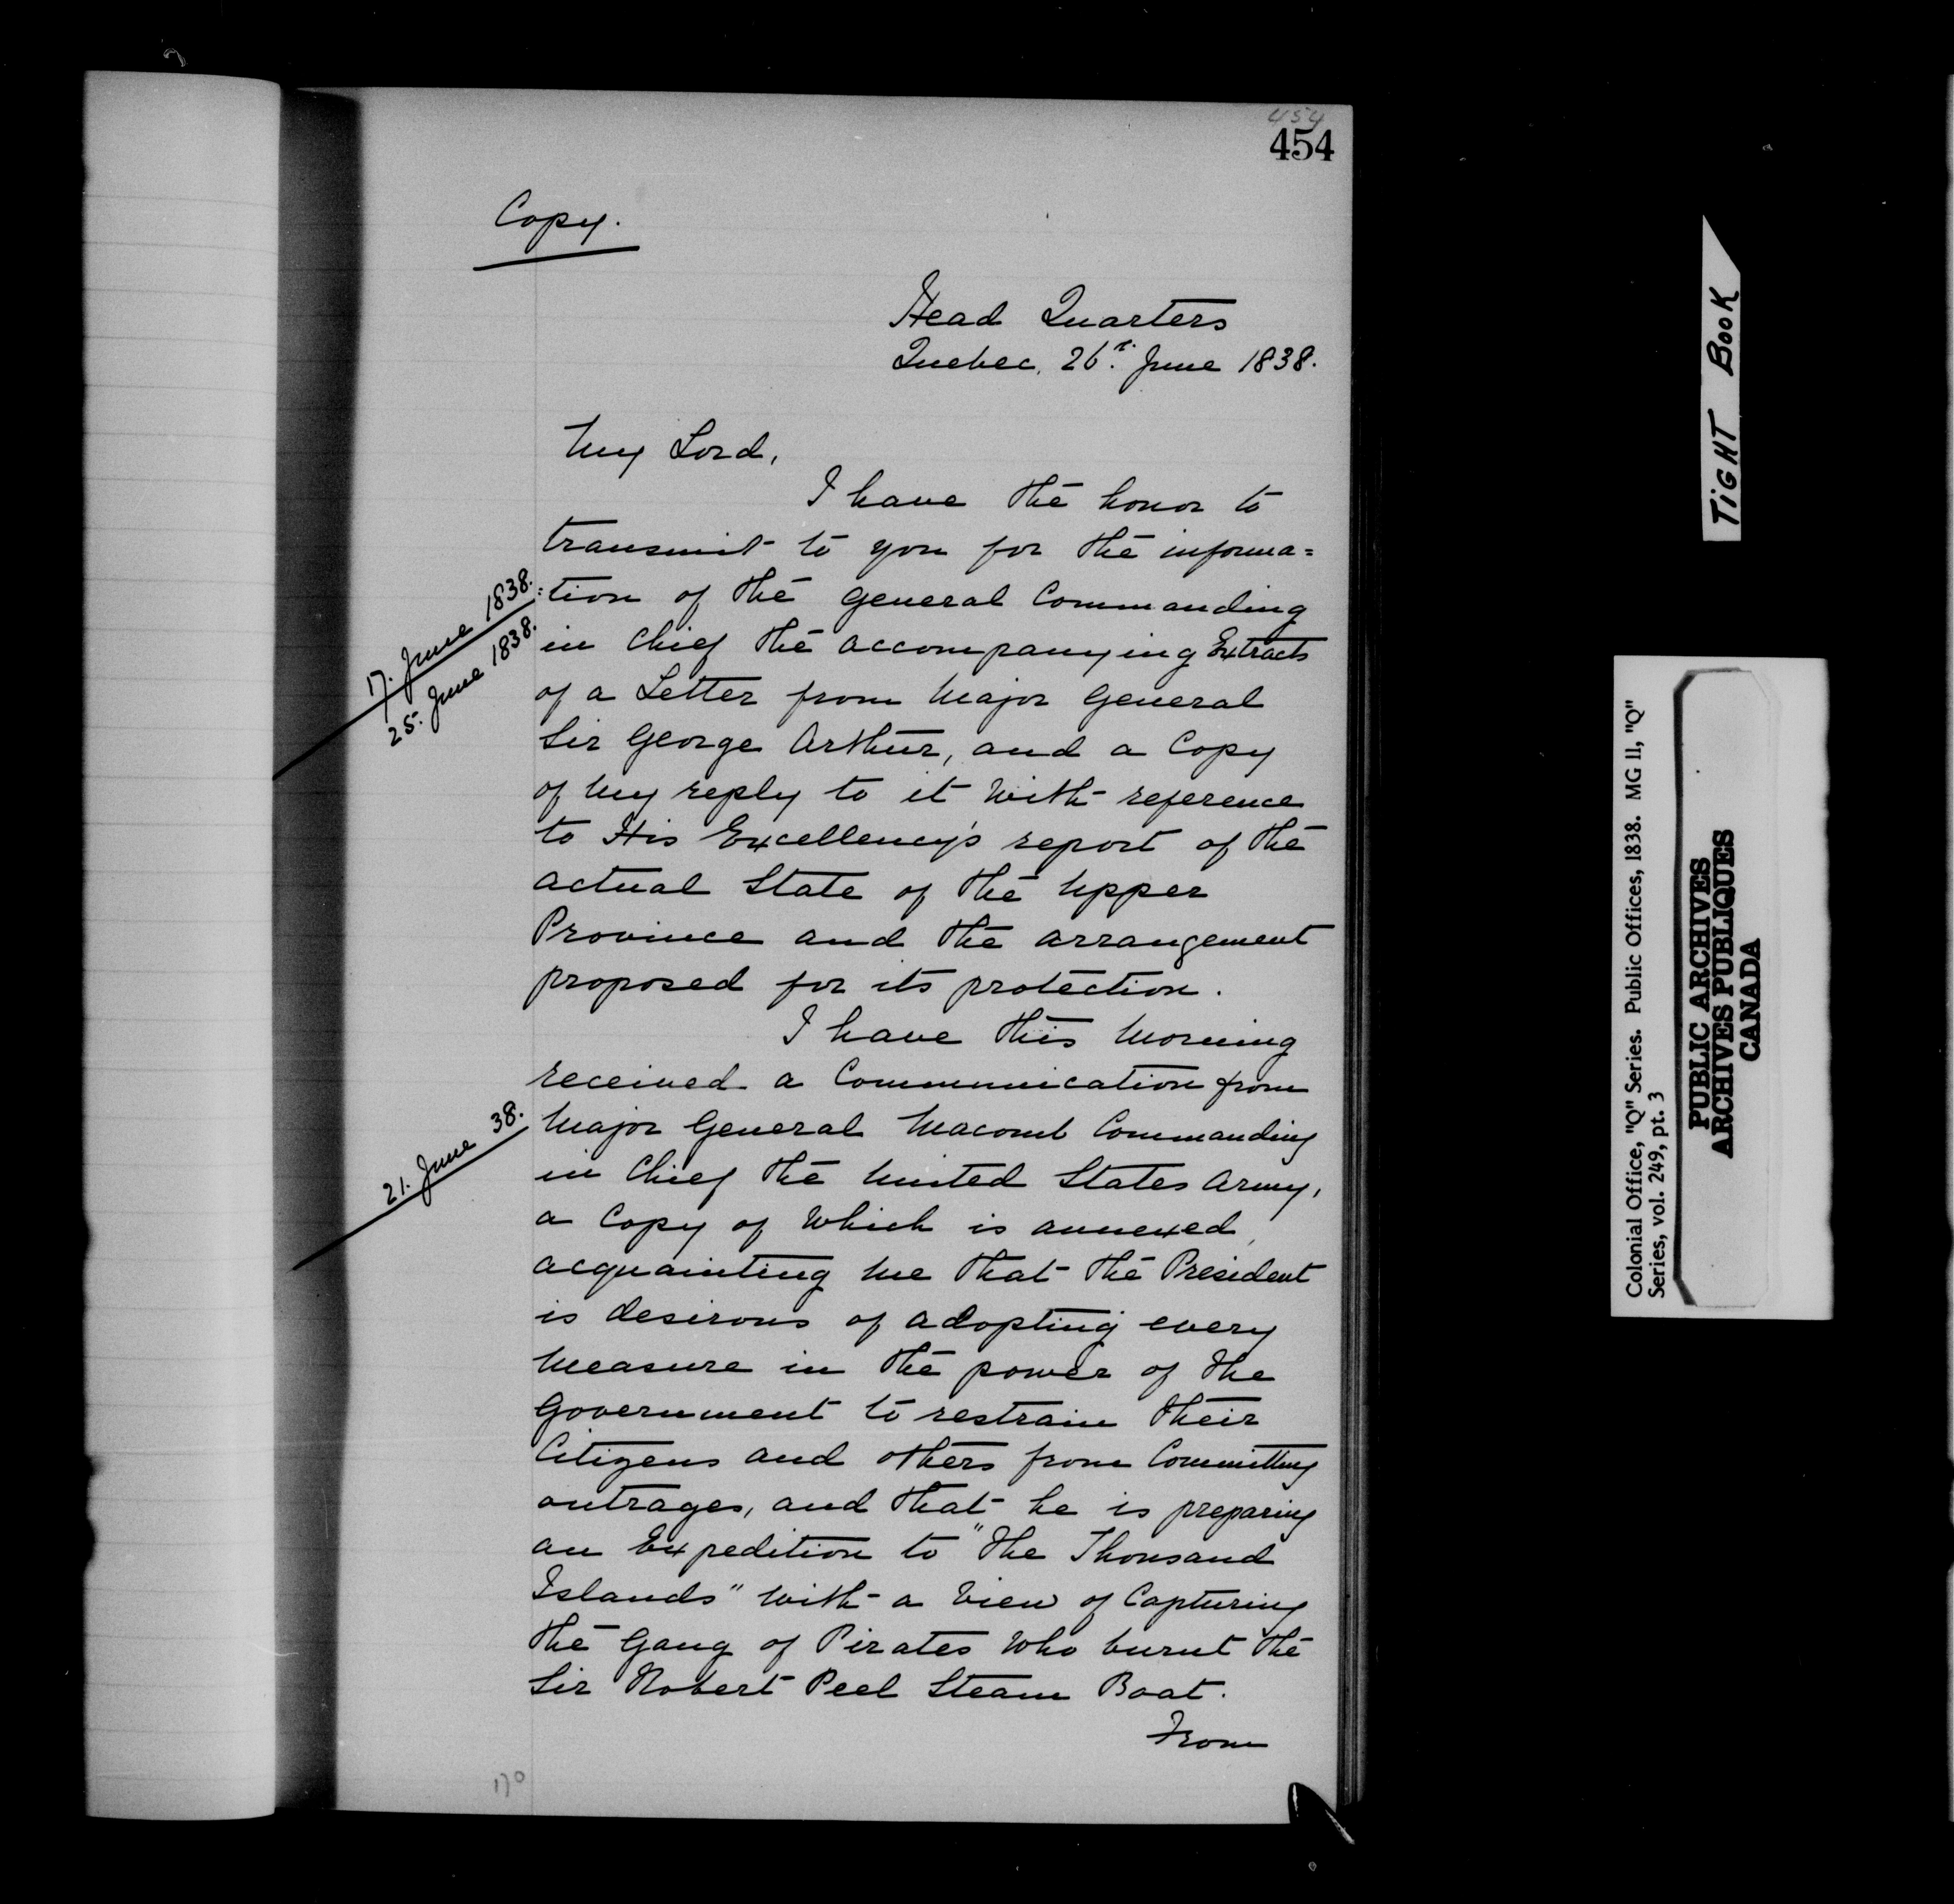 454
454
Copy.
Head Quarters
Quebec, 26th. June 1838.
My Lord,
I have the honor to
transmit to you for the informa=
17. June 1838.
25. June 1838.
=tion of the General Commanding
in Chief the accompanying Extracts
of a Letter from Major General
Sir George Arthur, and a Copy
of my reply to it with reference
to His Excellency's report of the
actual State of the Upper
Province and the arrangement
proposed for its protection.
I have this morning
received a Communication from
21. June 38.
Major General Macomb Commanding
in Chief the United States Army,
a Copy of which is annexed,
acquainting me that the President
is desirous of adopting every
measure in the power of the
Government to restrain their
Citizens and others from Committing
outrages, and that he is preparing
an Expedition to "The Thousand
Islands" with a view of Capturing
the Gang of Pirates who burnt the
Sir Robert Peel Steam Boat.
From
170
TIGHT BOOK
Colonial Office, "Q" Series. Public Offices, 1838. MG 11, "Q"
Series, vol. 249, pt. 3
PUBLIC ARCHIVES
ARCHIVES PUBLIQUES
CANADA